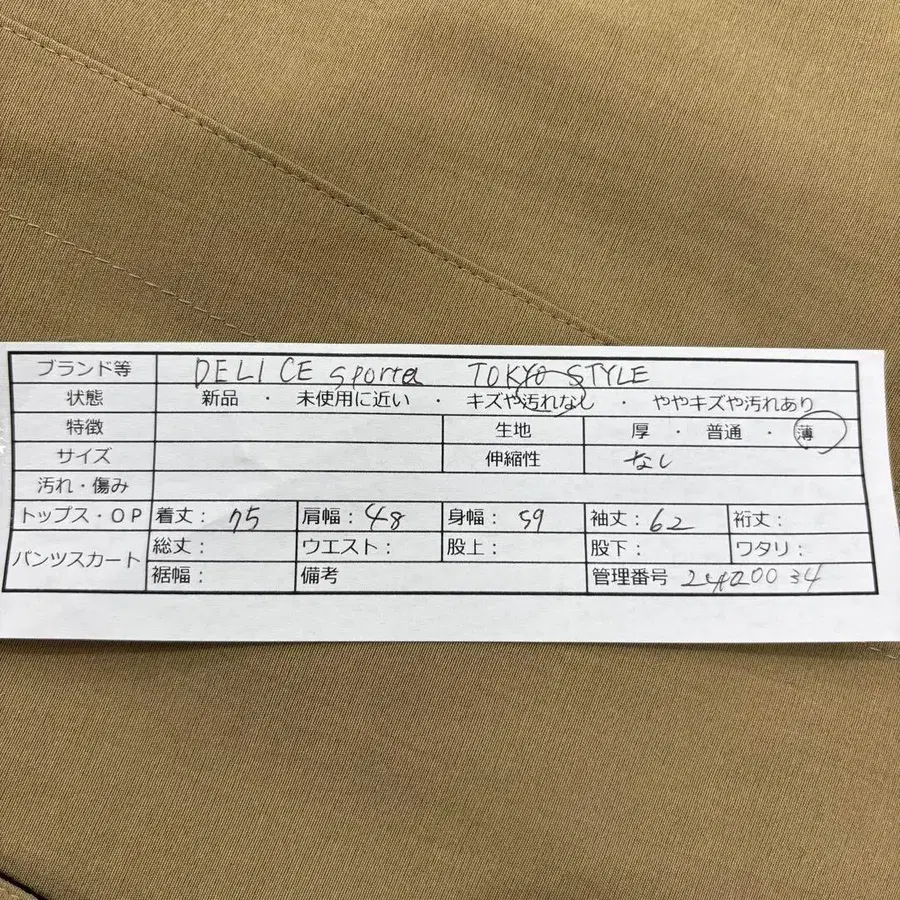 ブランド等 DELICE sporta TOKYO STYLE
状態 新品 ・ 未使用に近い ・ キズや汚れなし ・ ややキズや汚れあり
特徴 生地 厚 ・ 普通 ・ 薄
サイズ 伸縮性 なし
汚れ・傷み
トップス・OP 着丈： 75 肩幅： 48 身幅： 59 袖丈： 62 裄丈：
パンツスカート 総丈： ウエスト： 股上： 股下： ワタリ：
裾幅： 備考 管理番号